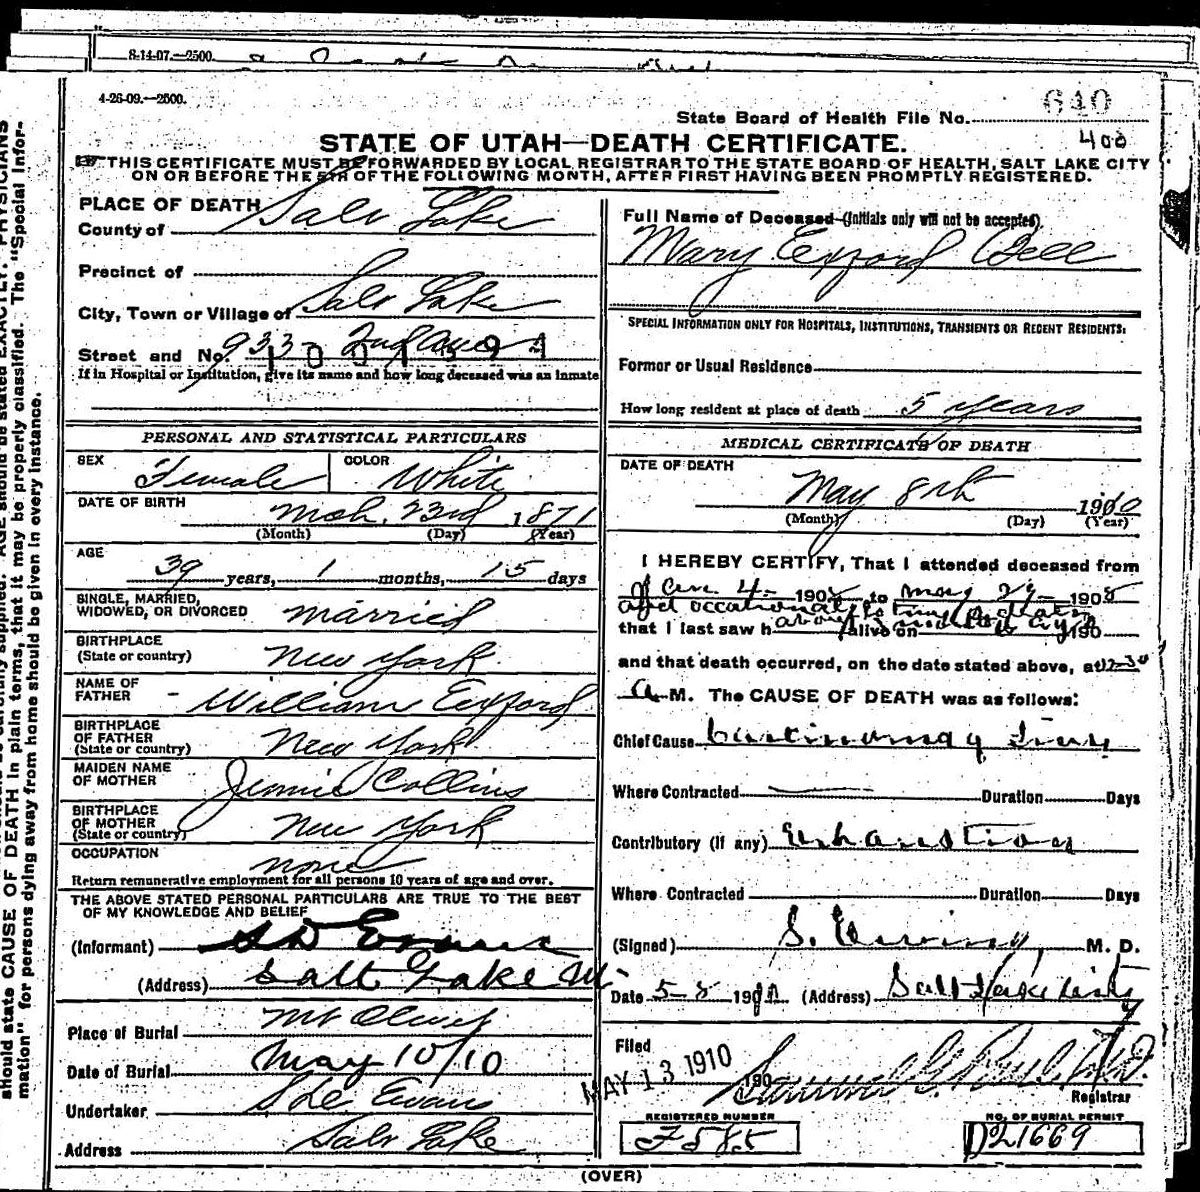 8-14-07.—2500.
4-26-09.—2500.
State Board of Health File No. 640
400
STATE OF UTAH—DEATH CERTIFICATE.
THIS CERTIFICATE MUST BE FORWARDED BY LOCAL REGISTRAR TO THE STATE BOARD OF HEALTH, SALT LAKE CITY
ON OR BEFORE THE 5TH OF THE FOLLOWING MONTH, AFTER FIRST HAVING BEEN PROMPTLY REGISTERED.
PLACE OF DEATH
County of Salt Lake
Precinct of
City, Town or Village of Salt Lake
Street and No. 933
If in Hospital or Institution, give its name and how long deceased was an inmate
PERSONAL AND STATISTICAL PARTICULARS
SEX Female COLOR White
DATE OF BIRTH Mch. 23rd 1871
(Month) (Day) (Year)
AGE 39 years, 1 months, 15 days
SINGLE, MARRIED,
WIDOWED, OR DIVORCED married
BIRTHPLACE
(State or country) New York
NAME OF
FATHER William Exford
BIRTHPLACE
OF FATHER
(State or country) New York
MAIDEN NAME
OF MOTHER Jennie Collins
BIRTHPLACE
OF MOTHER
(State or country) New York
OCCUPATION none
Return remunerative employment for all persons 10 years of age and over.
THE ABOVE STATED PERSONAL PARTICULARS ARE TRUE TO THE BEST
OF MY KNOWLEDGE AND BELIEF
(Informant) SD Evans
(Address) Salt Lake
Place of Burial Mt Olivet
Date of Burial May 10/10
Undertaker Evans
Address Salt Lake
Full Name of Deceased (Initials only will not be accepted)
Mary Exford Bell
SPECIAL INFORMATION ONLY FOR HOSPITALS, INSTITUTIONS, TRANSIENTS OR RECENT RESIDENTS:
Former or Usual Residence
How long resident at place of death 5 years
MEDICAL CERTIFICATE OF DEATH
DATE OF DEATH
May 8th 1910
(Month) (Day) (Year)
I HEREBY CERTIFY, That I attended deceased from
Jan. 4 1908 to May 29 1908
that I last saw h alive on 190
and that death occurred, on the date stated above, at 12-30
A M. The CAUSE OF DEATH was as follows:
Chief Cause
Where Contracted Duration Days
Contributory (if any) Exhaustion
Where Contracted Duration Days
(Signed) S. Ewing, M. D.
Date 5-8 1910 (Address) Salt Lake City
Filed
MAY 13 1910 190
Registrar
REGISTERED NUMBER
F585
NO. OF BURIAL PERMIT
D21669
(OVER)